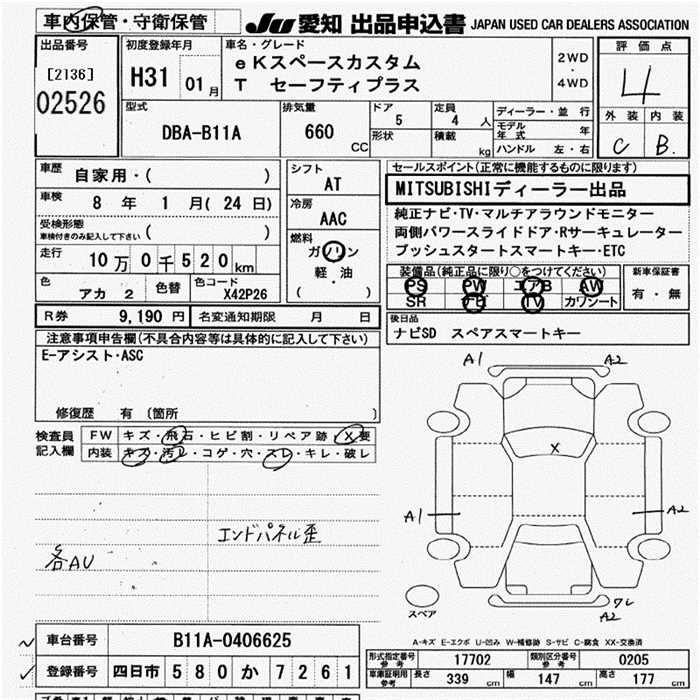 車内保管・守衛保管
JU 愛知 出品申込書 JAPAN USED CAR DEALERS ASSOCIATION
出品番号
[2136]
02526
初度登録年月
H31 01月
車名・グレード
eKスペースカスタム
T セーフティプラス
2WD
・
4WD
評価点
4
外装 内装
C B.
型式
DBA-B11A
排気量
660
CC
ドア
5
形状
定員
4人
積載
kg
ディーラー・並行
モデル年式 年
ハンドル 左・右
車歴
自家用・( )
車検
8年 1月(24日)
受検形態
車検付きのみ記入して下さい ( )
走行
10万0千520km
色
アカ 2
色替
色コード
X42P26
シフト
AT
冷房
AAC
燃料
ガソリン
軽・油
( )
R券 9,190円
名変通知期限 月 日
セールスポイント(正常に機能するものに限ります)
MITSUBISHIディーラー出品
純正ナビ・TV・マルチアラウンドモニター
両側パワースライドドア・Rサーキュレーター
プッシュスタートスマートキー・ETC
装備品(純正品に限り○をつけてください)
PS PW エアB AW
SR ナビ TV カワシート
新車保証書
有・無
後日品
ナビSD スペアスマートキー
注意事項申告欄(不具合内容等は具体的に記入して下さい)
E-アシスト・ASC
修復歴 有 〔箇所 〕
検査員記入欄
FW キズ・飛石・ヒビ割・リペア跡・X要
内装 キズ・汚レ・コゲ・穴・スレ・キレ・破レ
エンドパネル歪
各AU
A1
A2
X
A1
A2
スペア
ワレ
A2
A-キズ E-エクボ U-凹み W-補修跡 S-サビ C-腐食 XX-交換済
車台番号 B11A-0406625
登録番号 四日市 580 か 7261
形式指定番号 参考 17702
類別区分番号 参考 0205
車庫証明用 参考
長さ 339cm
幅 147cm
高さ 177cm